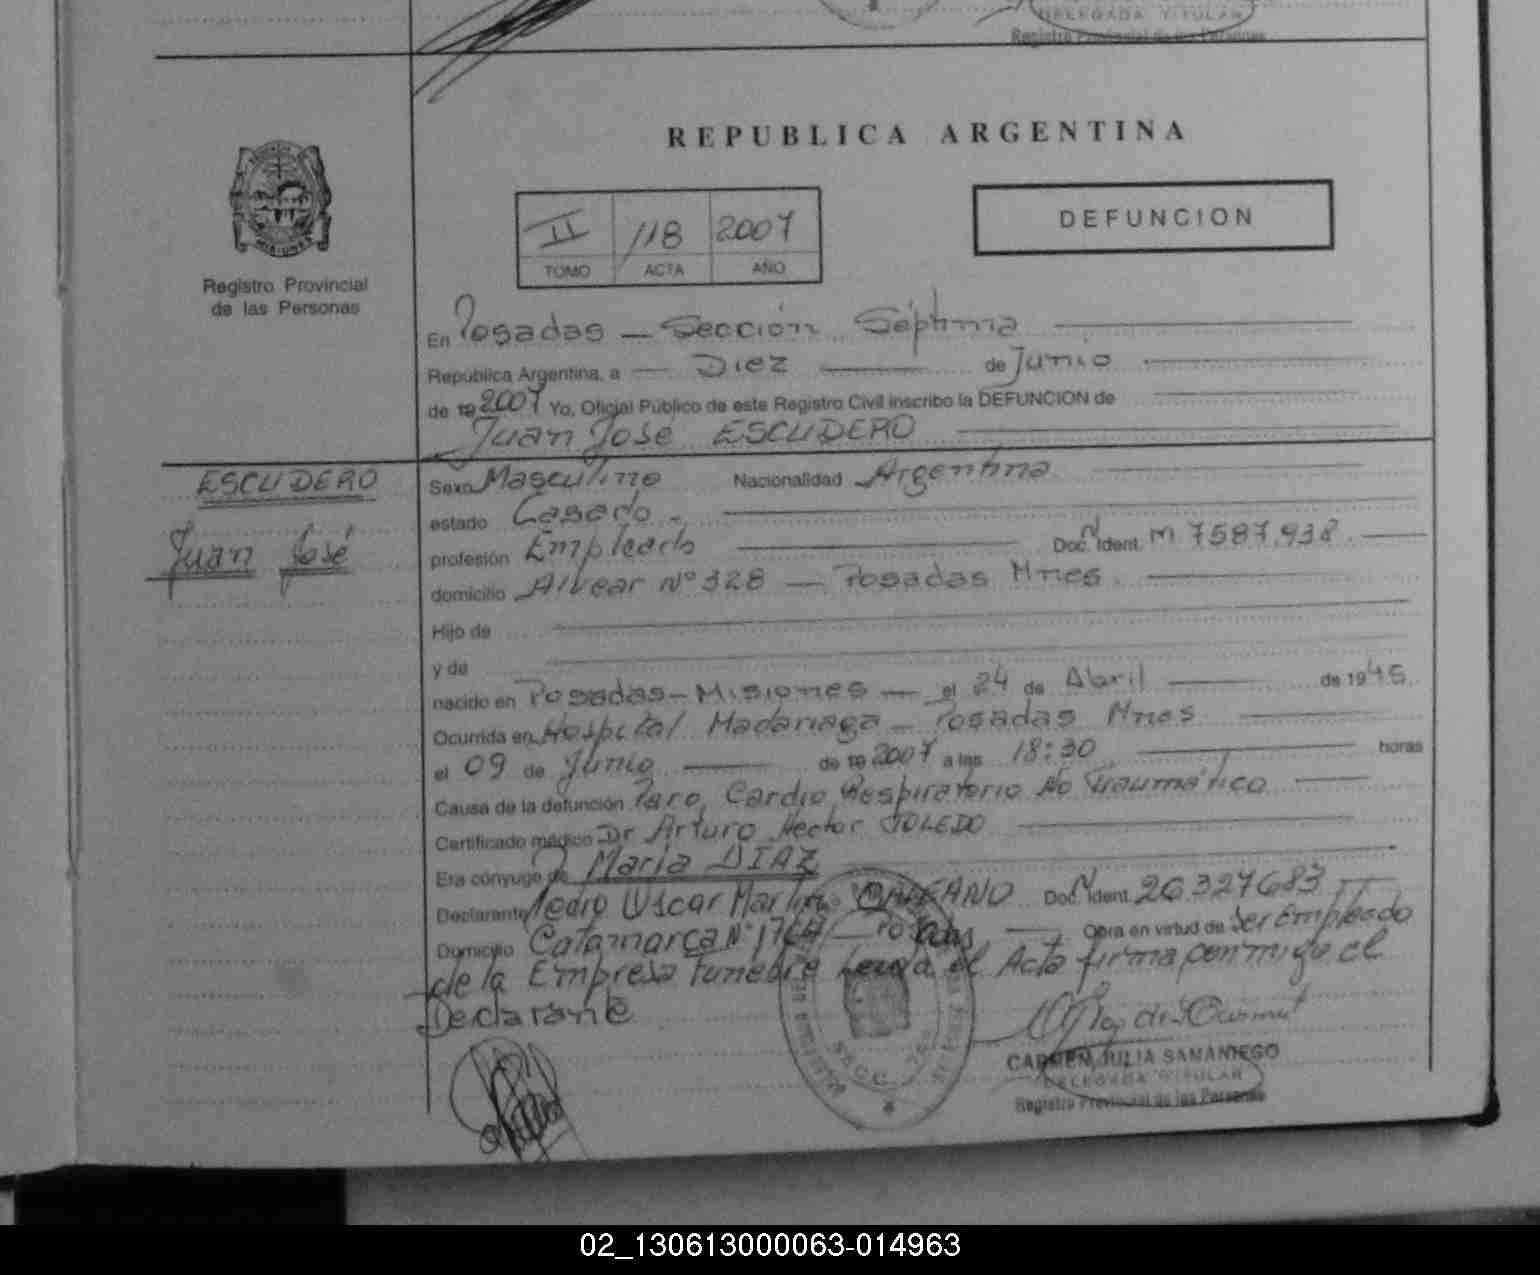 DELEGADA TITULAR
Registro Provincial de las Personas
REPUBLICA ARGENTINA
II 118 2007
TOMO ACTA AÑO
DEFUNCION
MISIONES
Registro Provincial
de las Personas
En Posadas — Sección Séptima
República Argentina, a — Diez — de Junio
de 19 2007 Yo, Oficial Público de este Registro Civil inscribo la DEFUNCION de
Juan José ESCUDERO
ESCUDERO
Juan José
Sexo Masculino Nacionalidad Argentina
estado Casado.-
profesión Empleado Doc. Ident. M 7587.938
domicilio Alvear Nº 328 — Posadas Mnes
Hijo de
y de
nacido en Posadas - Misiones — el 24 de Abril de 1945
Ocurrida en Hospital Madariaga - Posadas Mnes
el 09 de Junio de 19 2007 a las 18:30 horas
Causa de la defunción Paro Cardio Respiratorio No Traumático
Certificado médico Dr Arturo Hector TOLEDO
Era cónyuge de María DIAZ
Declarante Pedro Oscar Martin Doc. Ident. 26.327683
Domicilio Catamarca Nº Posadas Obra en virtud de Ser Empleado
de la Empresa Funebre Leida el Acta firma conmigo el
Declarante
SECC. 7ma
CARMEN JULIA SAMANIEGO
DELEGADA TITULAR
Registro Provincial de las Personas
02_130613000063-014963